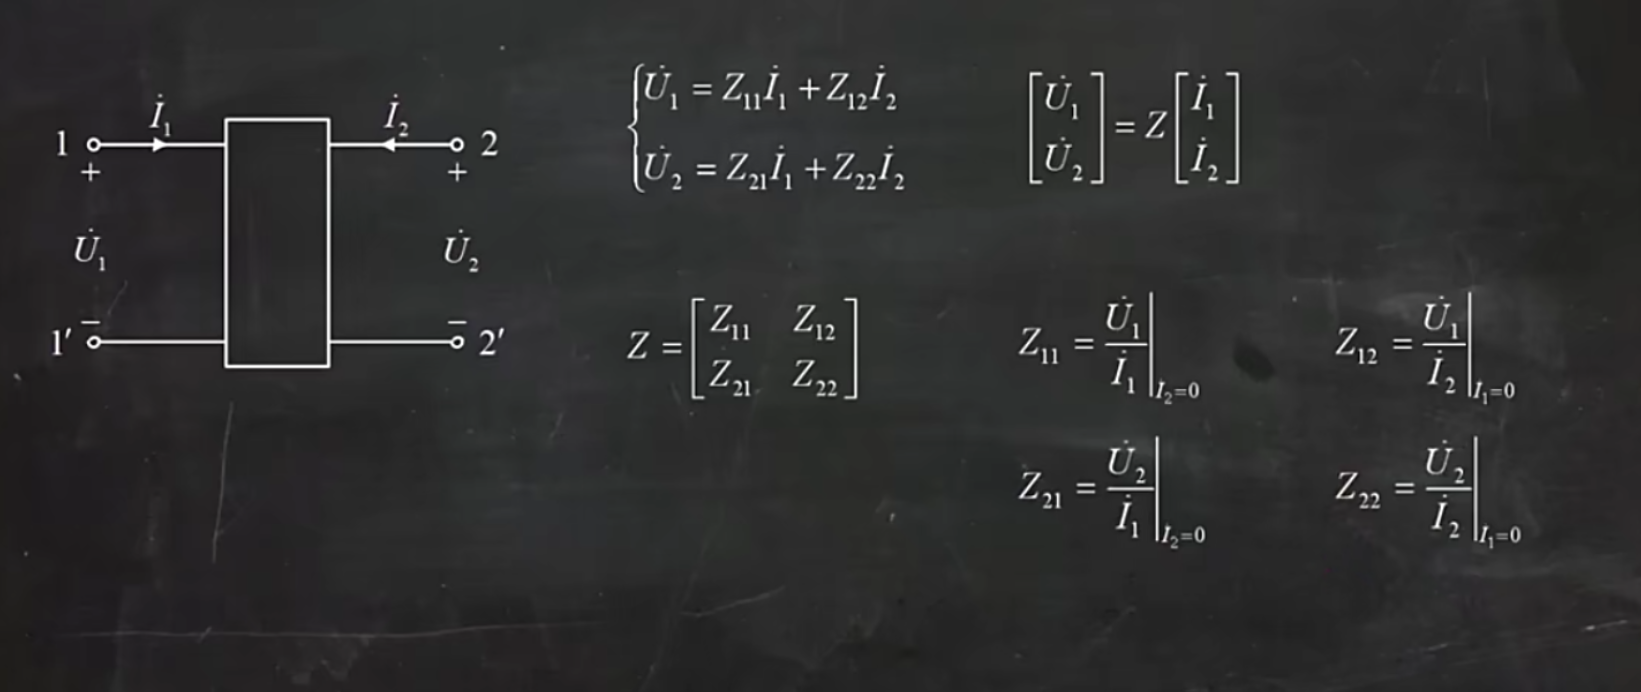 İ₁
İ₂
1
2
+
+
U̇₁
U̇₂
−
−
1′
2′
U̇₁ = Z₁₁İ₁ + Z₁₂İ₂
U̇₂ = Z₂₁İ₁ + Z₂₂İ₂
[U̇₁ U̇₂] = Z [İ₁ İ₂]
Z = [Z₁₁ Z₁₂
Z₂₁ Z₂₂]
Z₁₁ = U̇₁/İ₁ |I₂=0
Z₁₂ = U̇₁/İ₂ |I₁=0
Z₂₁ = U̇₂/İ₁ |I₂=0
Z₂₂ = U̇₂/İ₂ |I₁=0